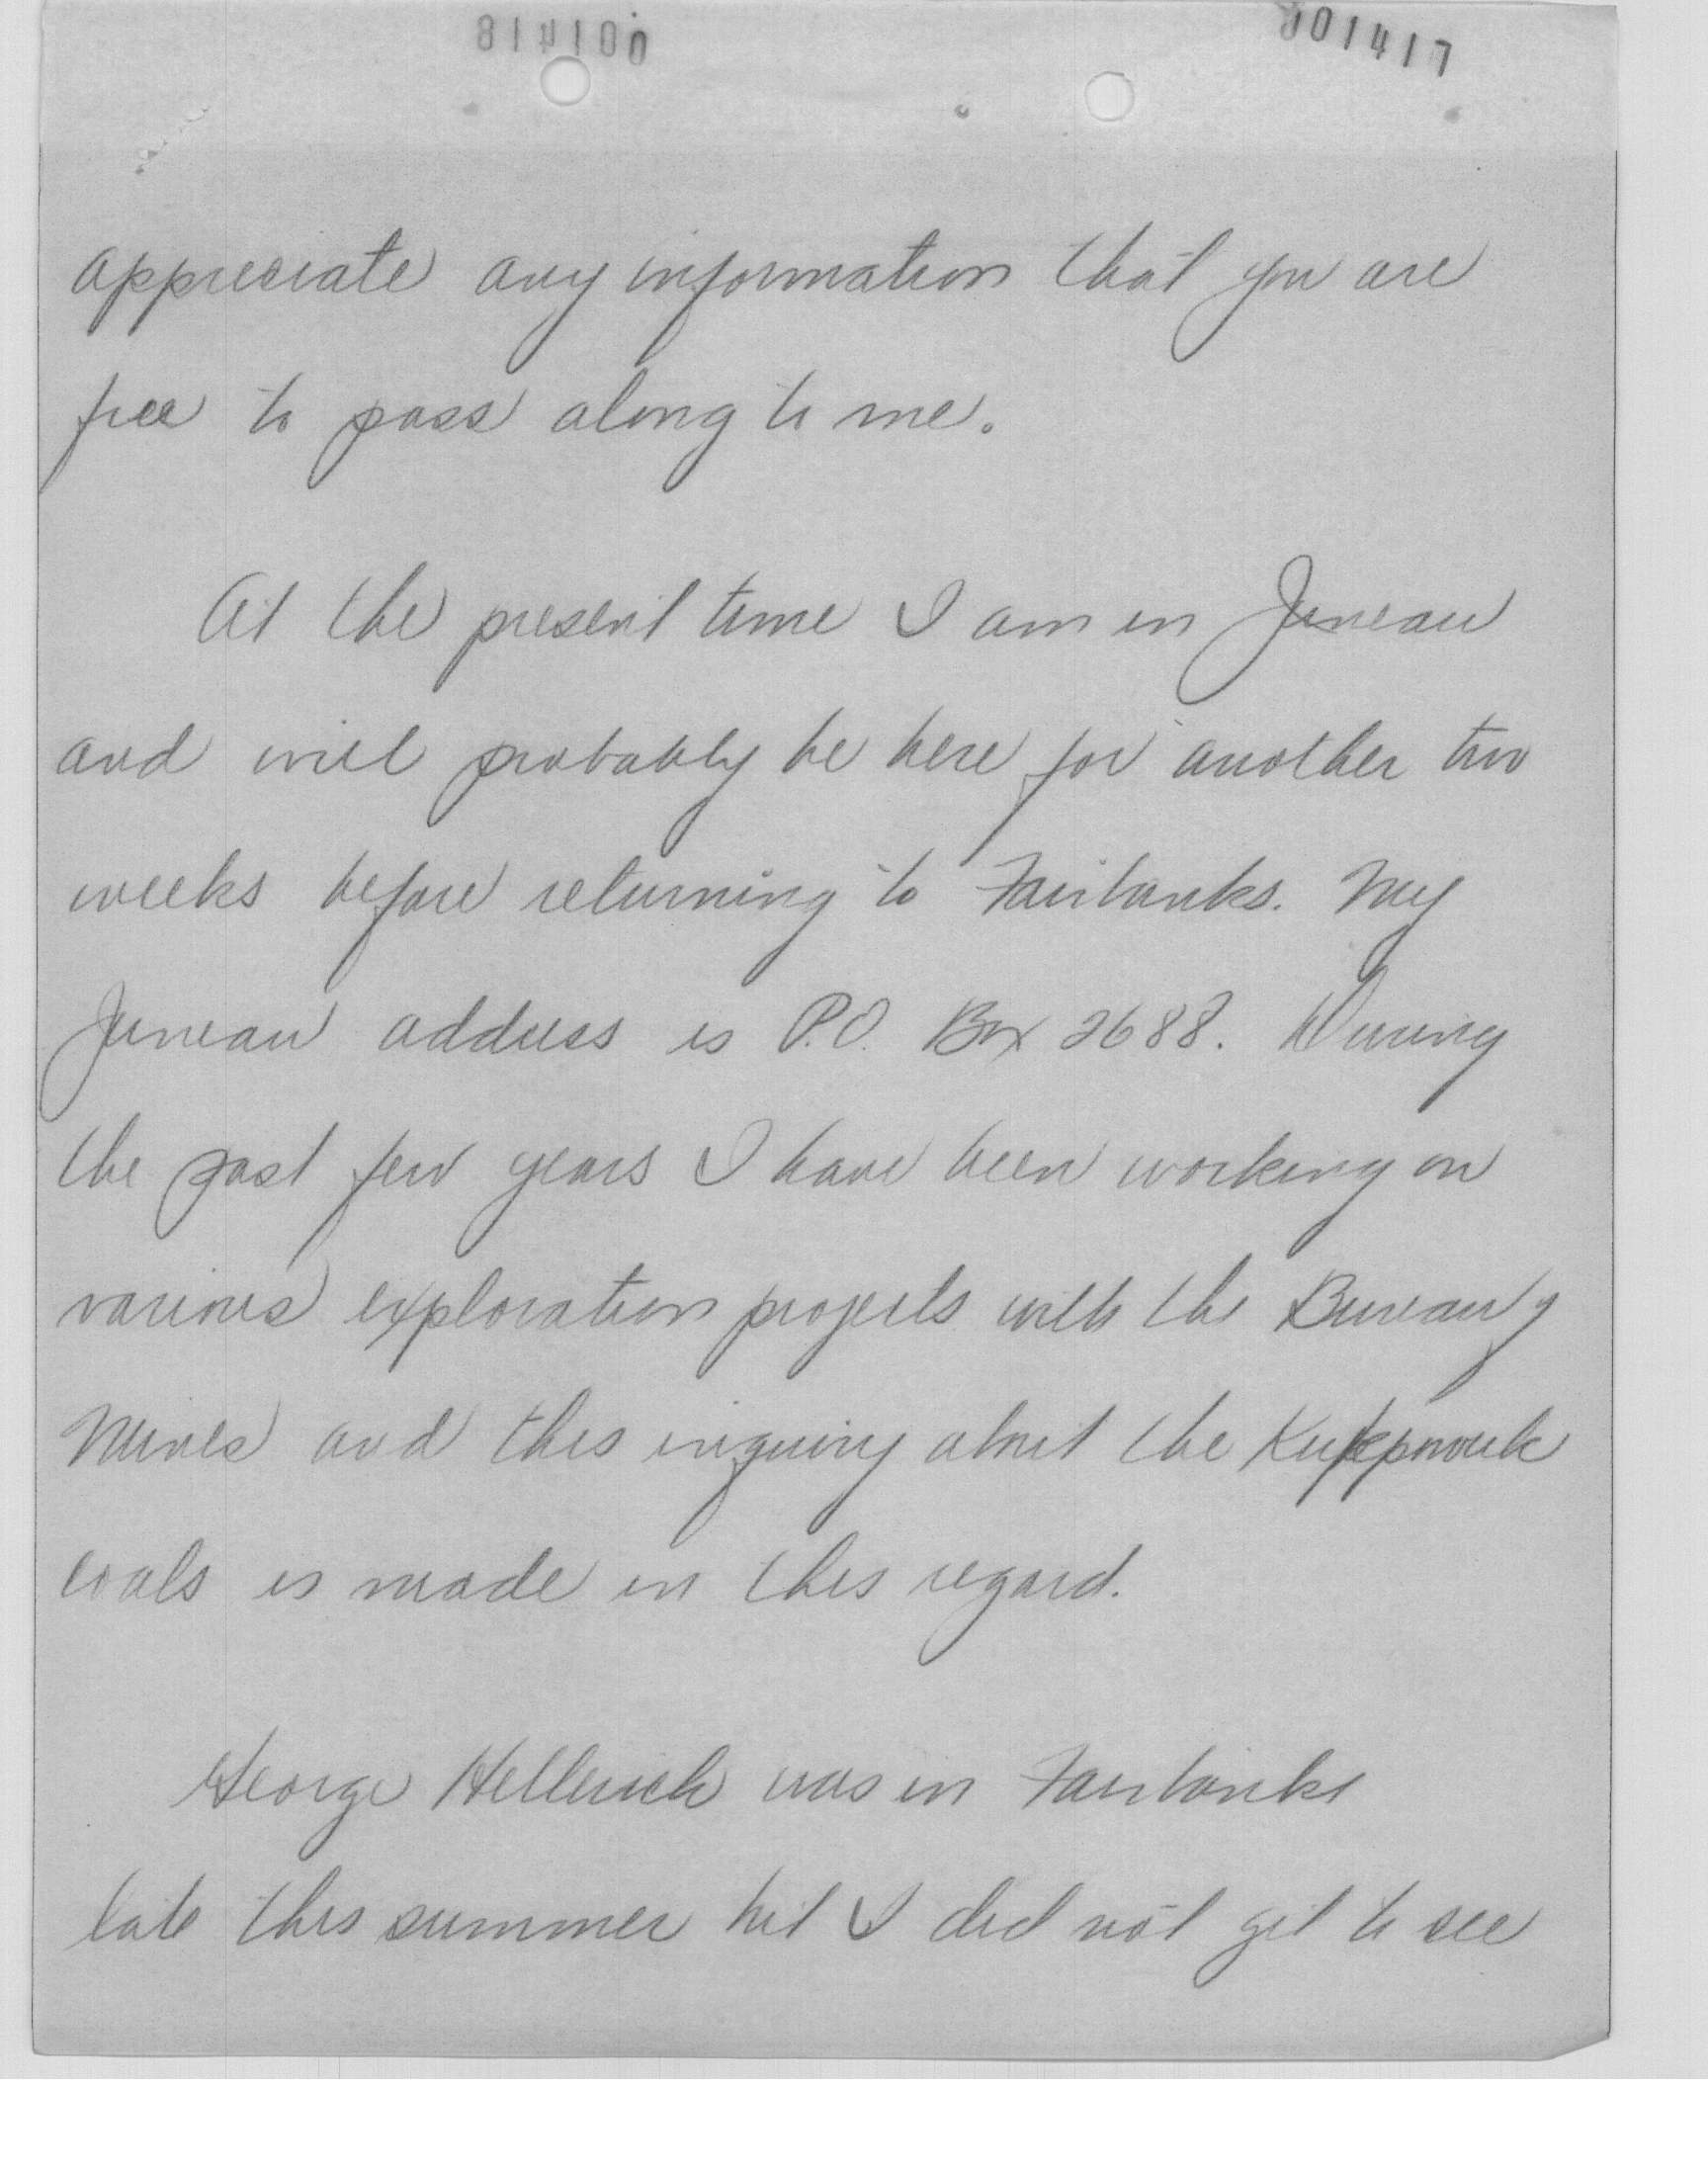 001418 001417
appreciate any information that you are
free to pass along to me.
At the present time I am in Juneau
and will probably be here for another two
weeks before returning to Fairbanks. My
Juneau address is P.O. Box 2688. During
the past few years I have been working on
various exploration projects with the Bureau of
Mines and this inquiry about the
coals is made in this regard.
George was in Fairbanks
late this summer but I did not get to see